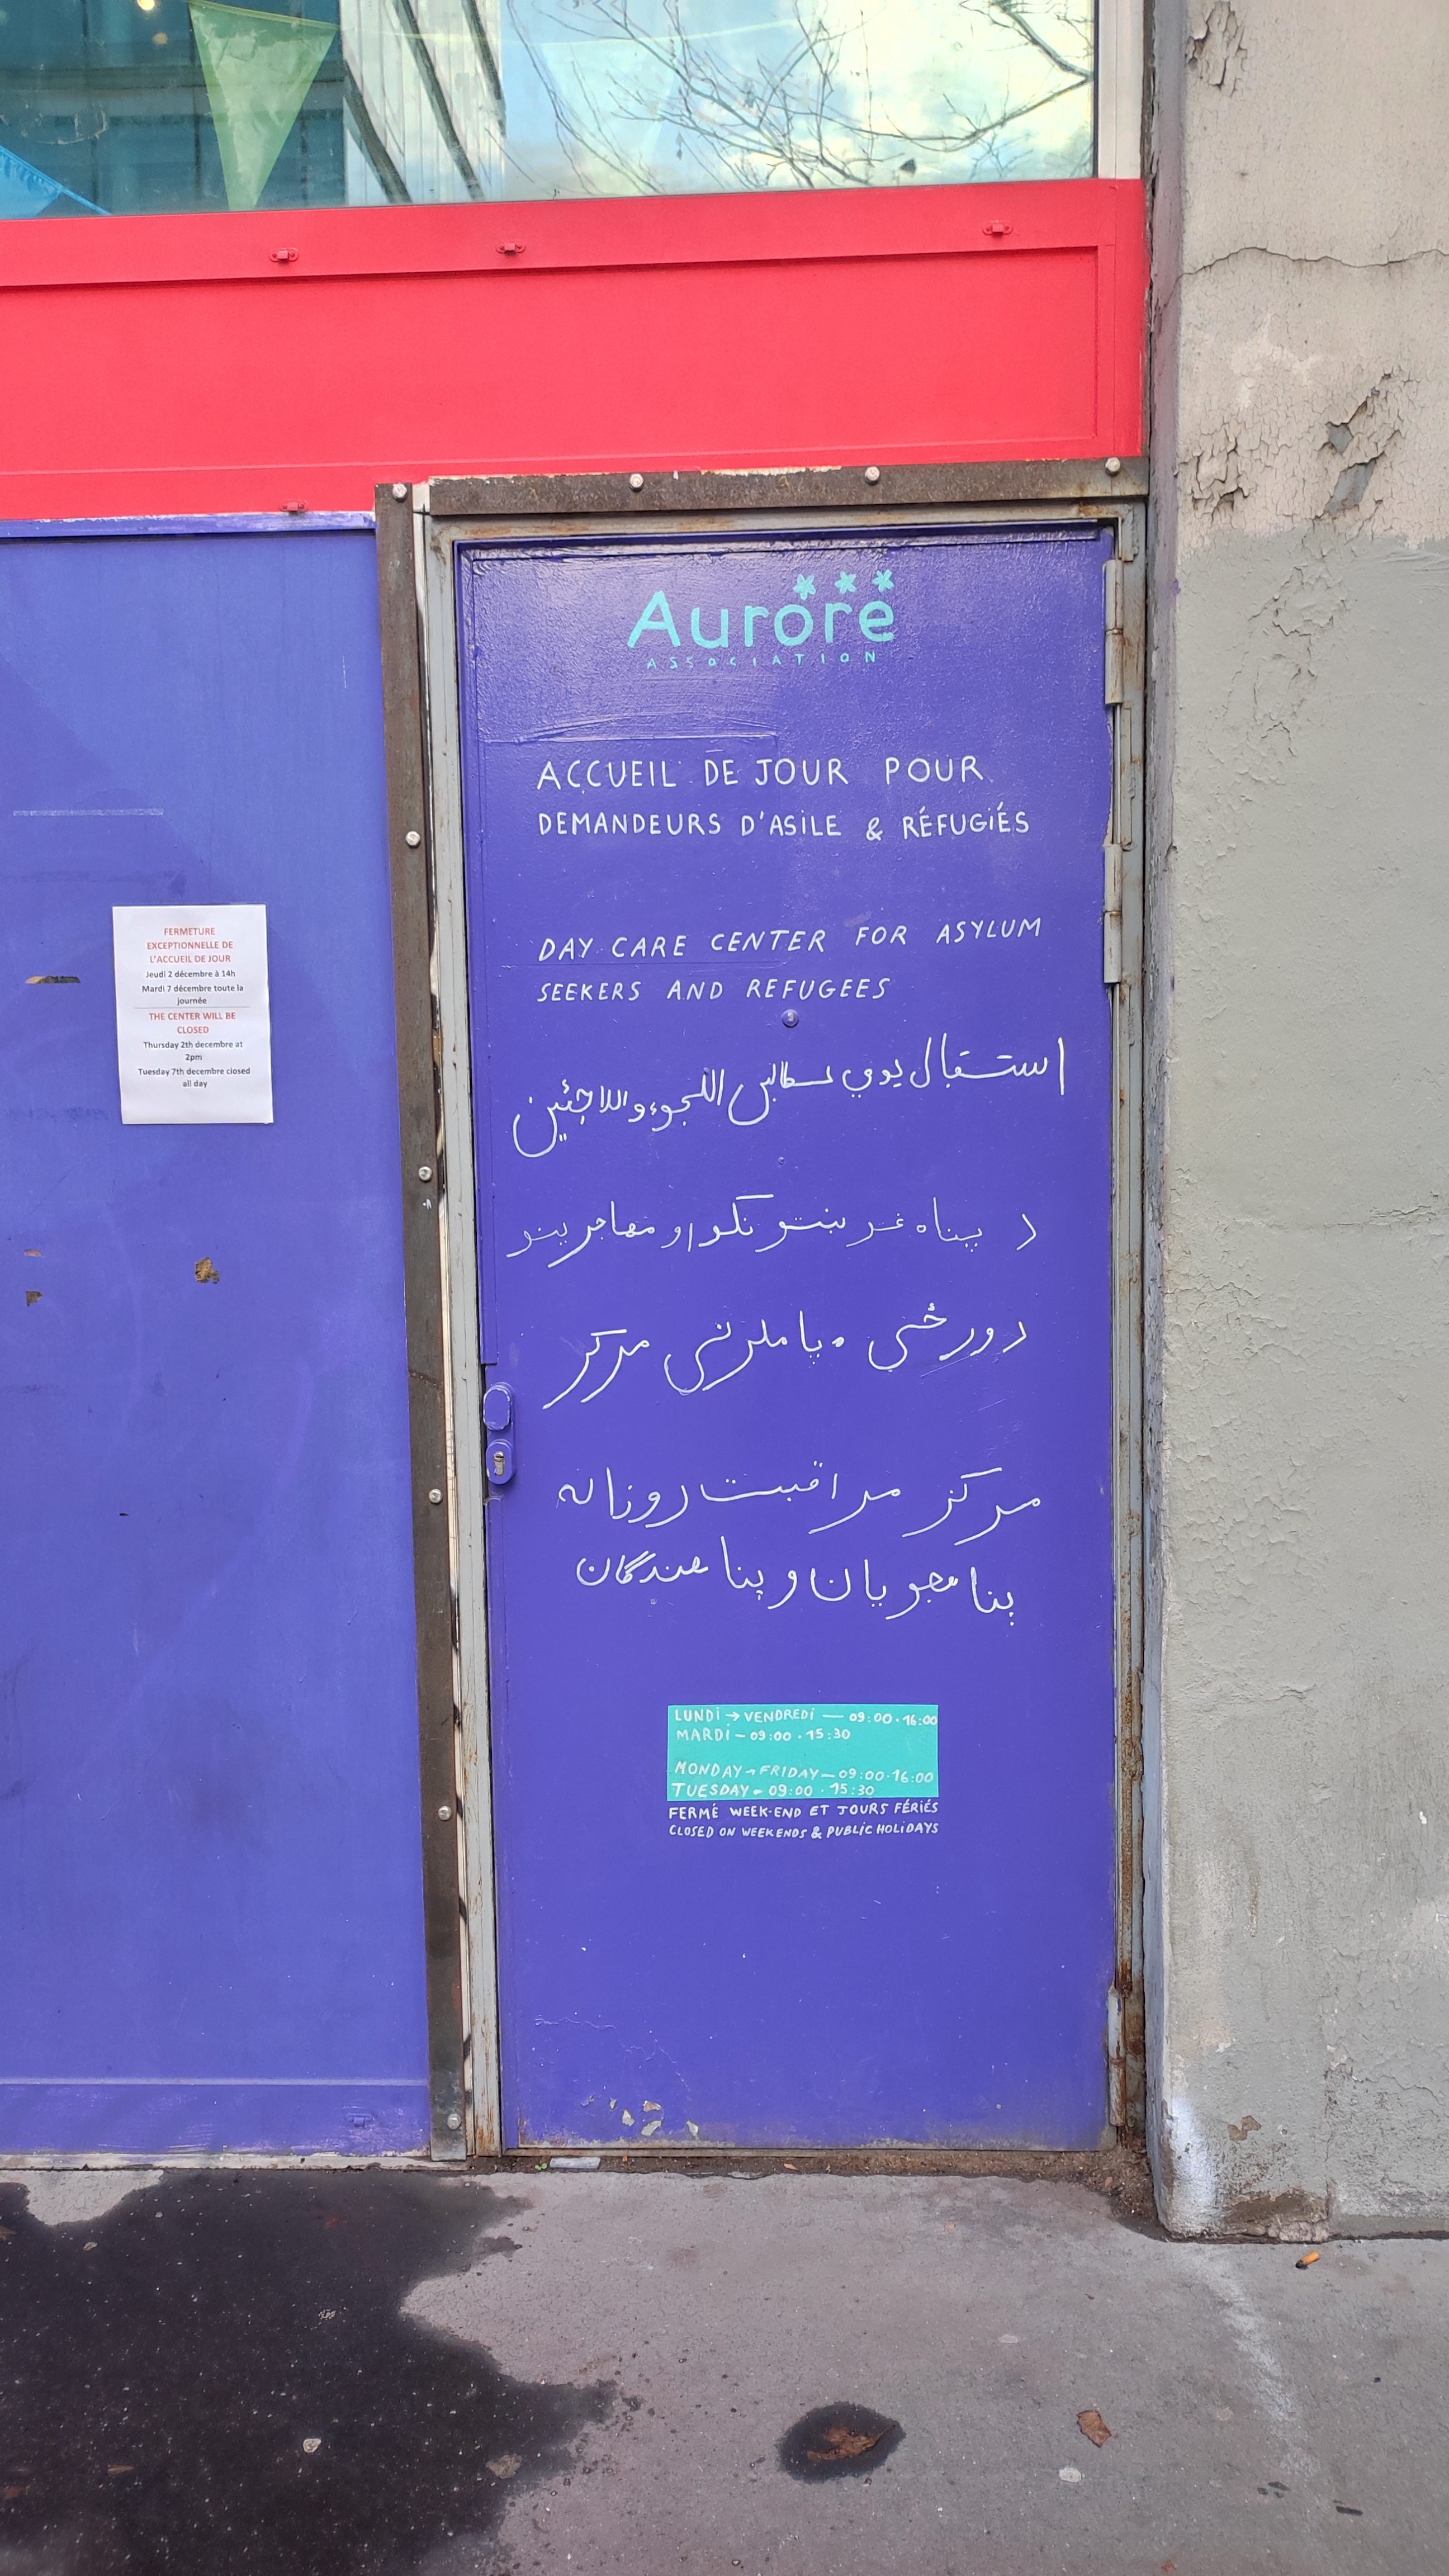 Aurore
ASSOCIATION
ACCUEIL DE JOUR POUR
DEMANDEURS D'ASILE & RÉFUGIÉS
DAY CARE CENTER FOR ASYLUM
SEEKERS AND REFUGEES
استقبال يومي لطالبي اللجوء واللاجئين
د پناه غوښتونکو او مهاجرینو
دورځنی پاملرنی مرکز
مرکز مراقبت روزانه
پناهجویان و پناهندگان
LUNDI → VENDREDI — 09:00 · 16:00
MARDI — 09:00 · 15:30
MONDAY → FRIDAY — 09:00 · 16:00
TUESDAY — 09:00 · 15:30
FERMÉ WEEK-END ET JOURS FÉRIÉS
CLOSED ON WEEKENDS & PUBLIC HOLIDAYS
FERMETURE
EXCEPTIONNELLE DE
L'ACCUEIL DE JOUR
Jeudi 2 décembre à 14h
Mardi 7 décembre toute la
journée
THE CENTER WILL BE
CLOSED
Thursday 2th decembre at
2pm
Tuesday 7th decembre closed
all day